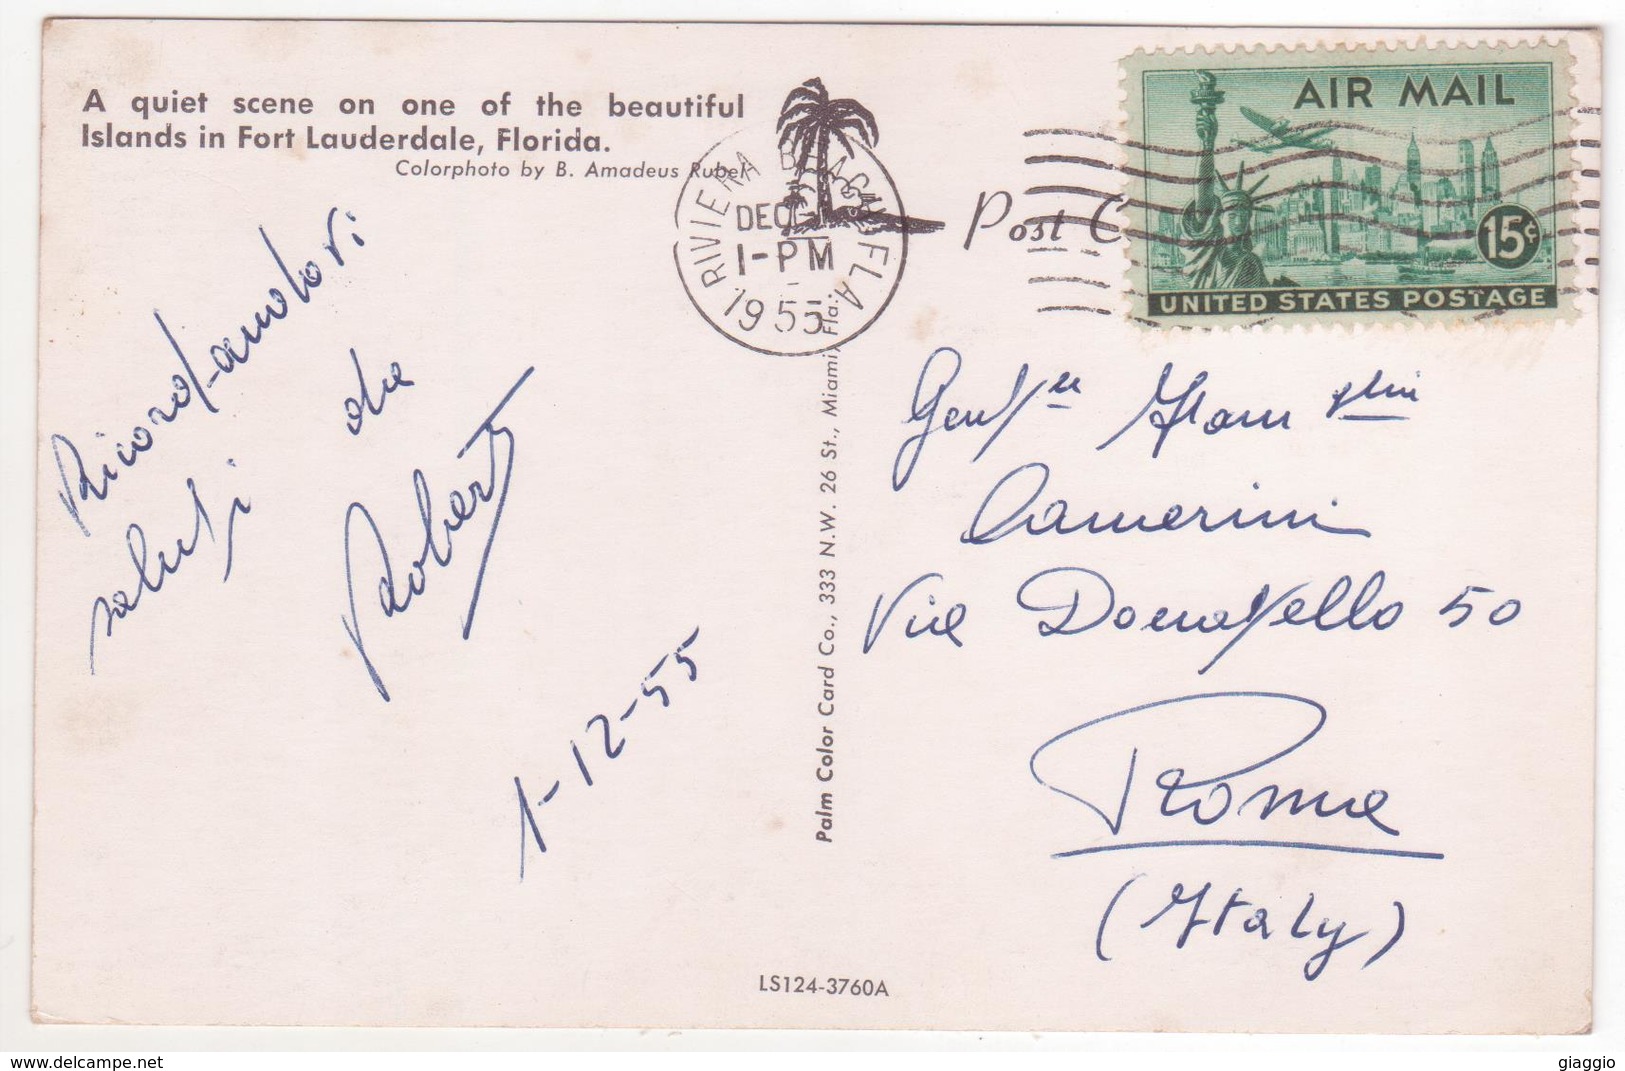 A quiet scene on one of the beautiful
Islands in Fort Lauderdale, Florida.
Colorphoto by B. Amadeus Rubel
RIVIERA BEACH FLA
DEC
1-PM
1955
Post C
AIR MAIL
15¢
UNITED STATES POSTAGE
Ricordandovi
saluti da
Roberto
1-12-55
Palm Color Card Co., 333 N.W. 26 St., Miami, Fla.
Camerini
Via Donatello 50
Roma
(Italy)
LS124-3760A
delcampe.net
giaggio